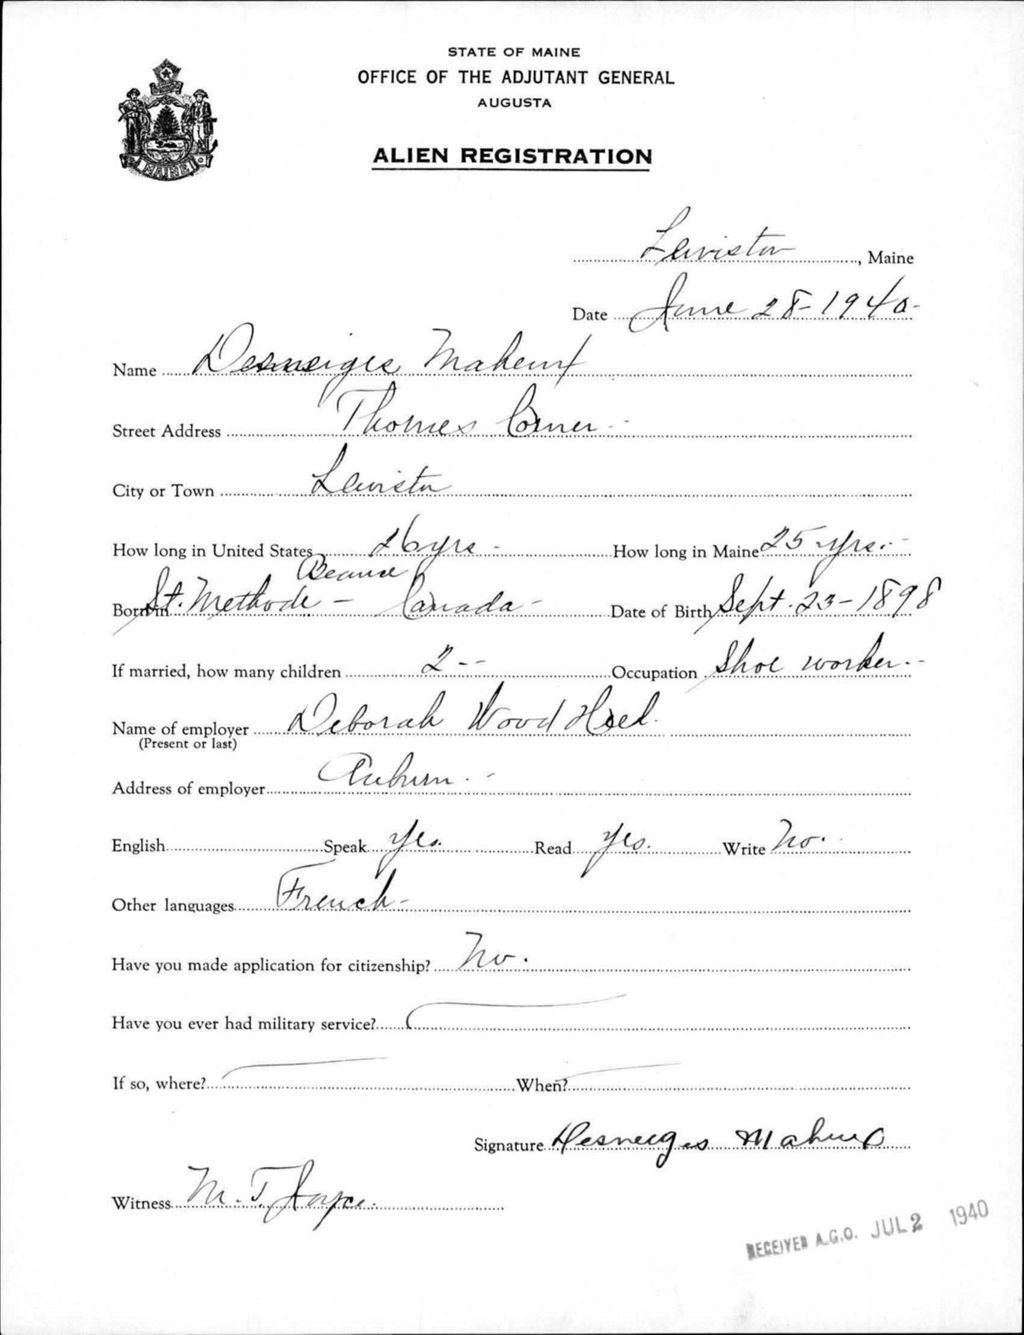 STATE OF MAINE
OFFICE OF THE ADJUTANT GENERAL
AUGUSTA
MAINE
ALIEN REGISTRATION
Lewiston, Maine
Date June 28-1940-
Name Desneiges Maheux
Street Address Thornes Corner-
City or Town Lewiston
How long in United States 26 yrs - How long in Maine 25 yrs.-
Beauce
Born in St. Methode - Canada - Date of Birth Sept. 23-1898
If married, how many children 2-- Occupation Shoe worker--
Name of employer Deborah Wood Heel
(Present or last)
Address of employer Auburn.-
English Speak Yes. Read Yes. Write No.
Other languages French-
Have you made application for citizenship? No.
Have you ever had military service?
If so, where? When?
Signature Desneiges Maheux
Witness M. T. Joyce.
RECEIVED A.G.O. JUL 2 1940